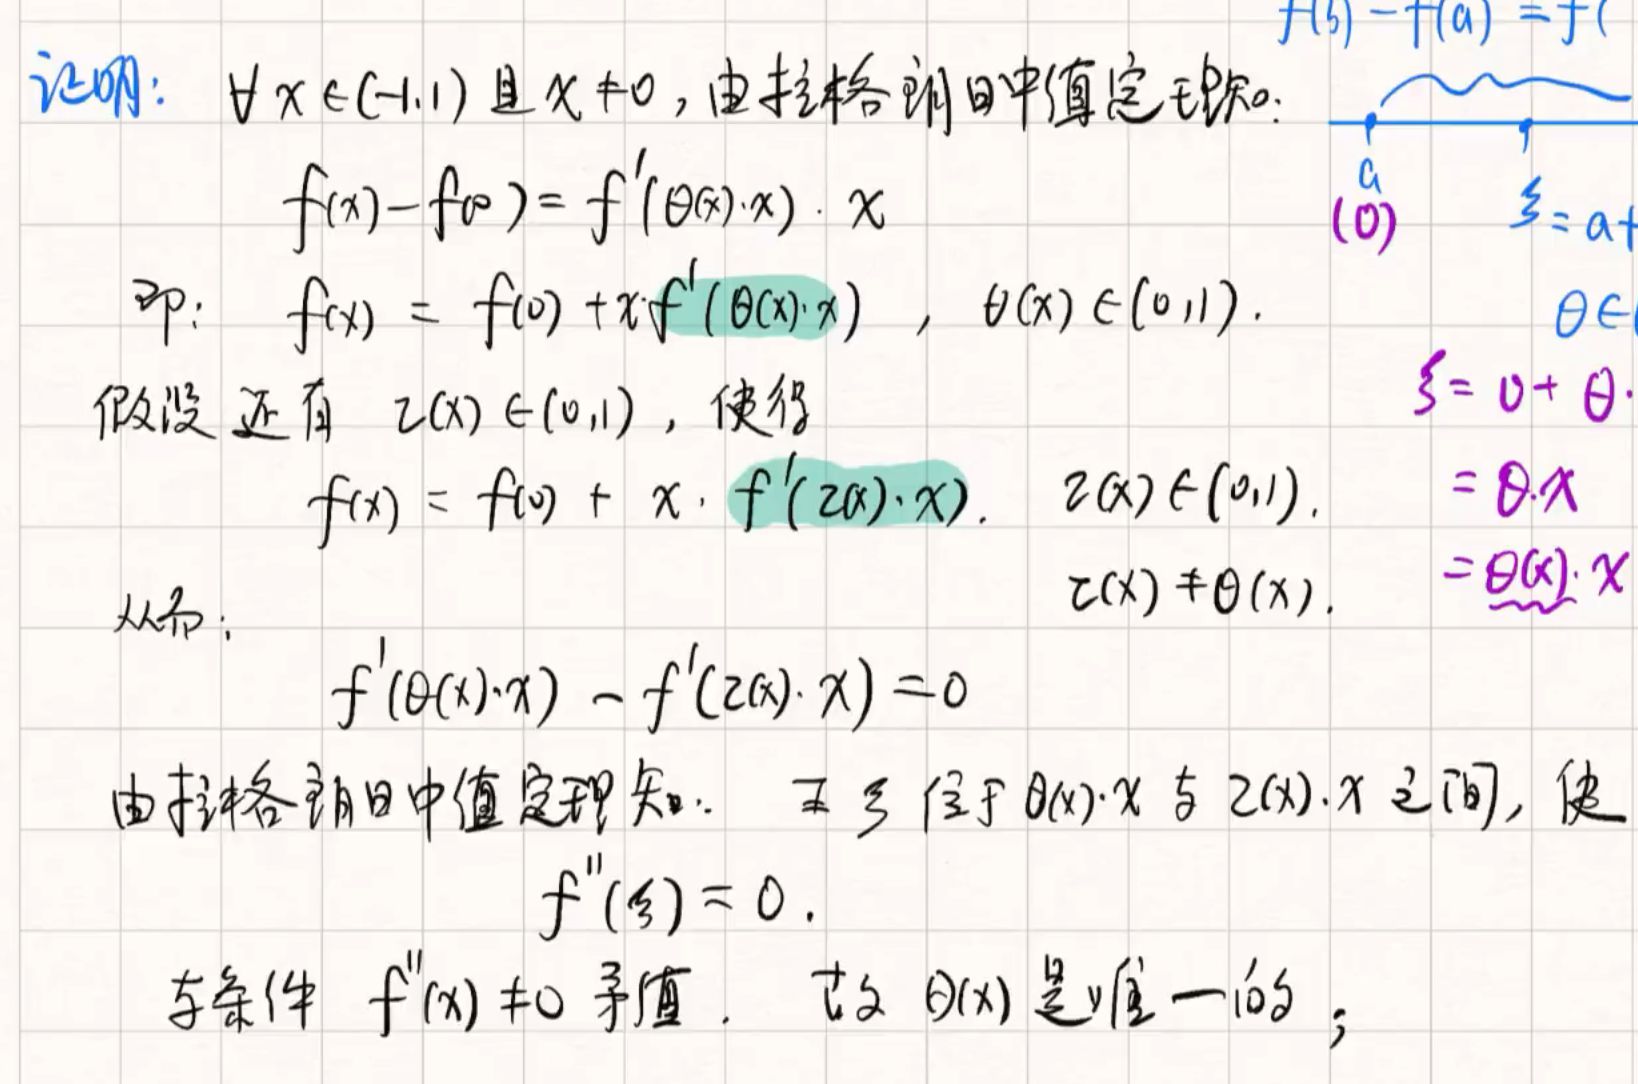 f(b) - f(a) = f(
证明: ∀ x ∈ (-1,1) 且 x ≠ 0, 由拉格朗日中值定理知:
f(x) - f(0) = f'(θ(x)·x) · x
即: f(x) = f(0) + x·f'(θ(x)·x) , θ(x) ∈ (0,1).
假设还有 τ(x) ∈ (0,1), 使得
f(x) = f(0) + x · f'(τ(x)·x). τ(x) ∈ (0,1).
τ(x) ≠ θ(x).
从而:
f'(θ(x)·x) - f'(τ(x)·x) = 0
由拉格朗日中值定理知: ∃ ξ 位于 θ(x)·x 与 τ(x)·x 之间, 使
f''(ξ) = 0.
与条件 f''(x) ≠ 0 矛值. 故 θ(x) 是唯一的;
a
(0)
ξ = a+
θ ∈
ξ = 0 + θ·
= θ·x
= θ(x)·x